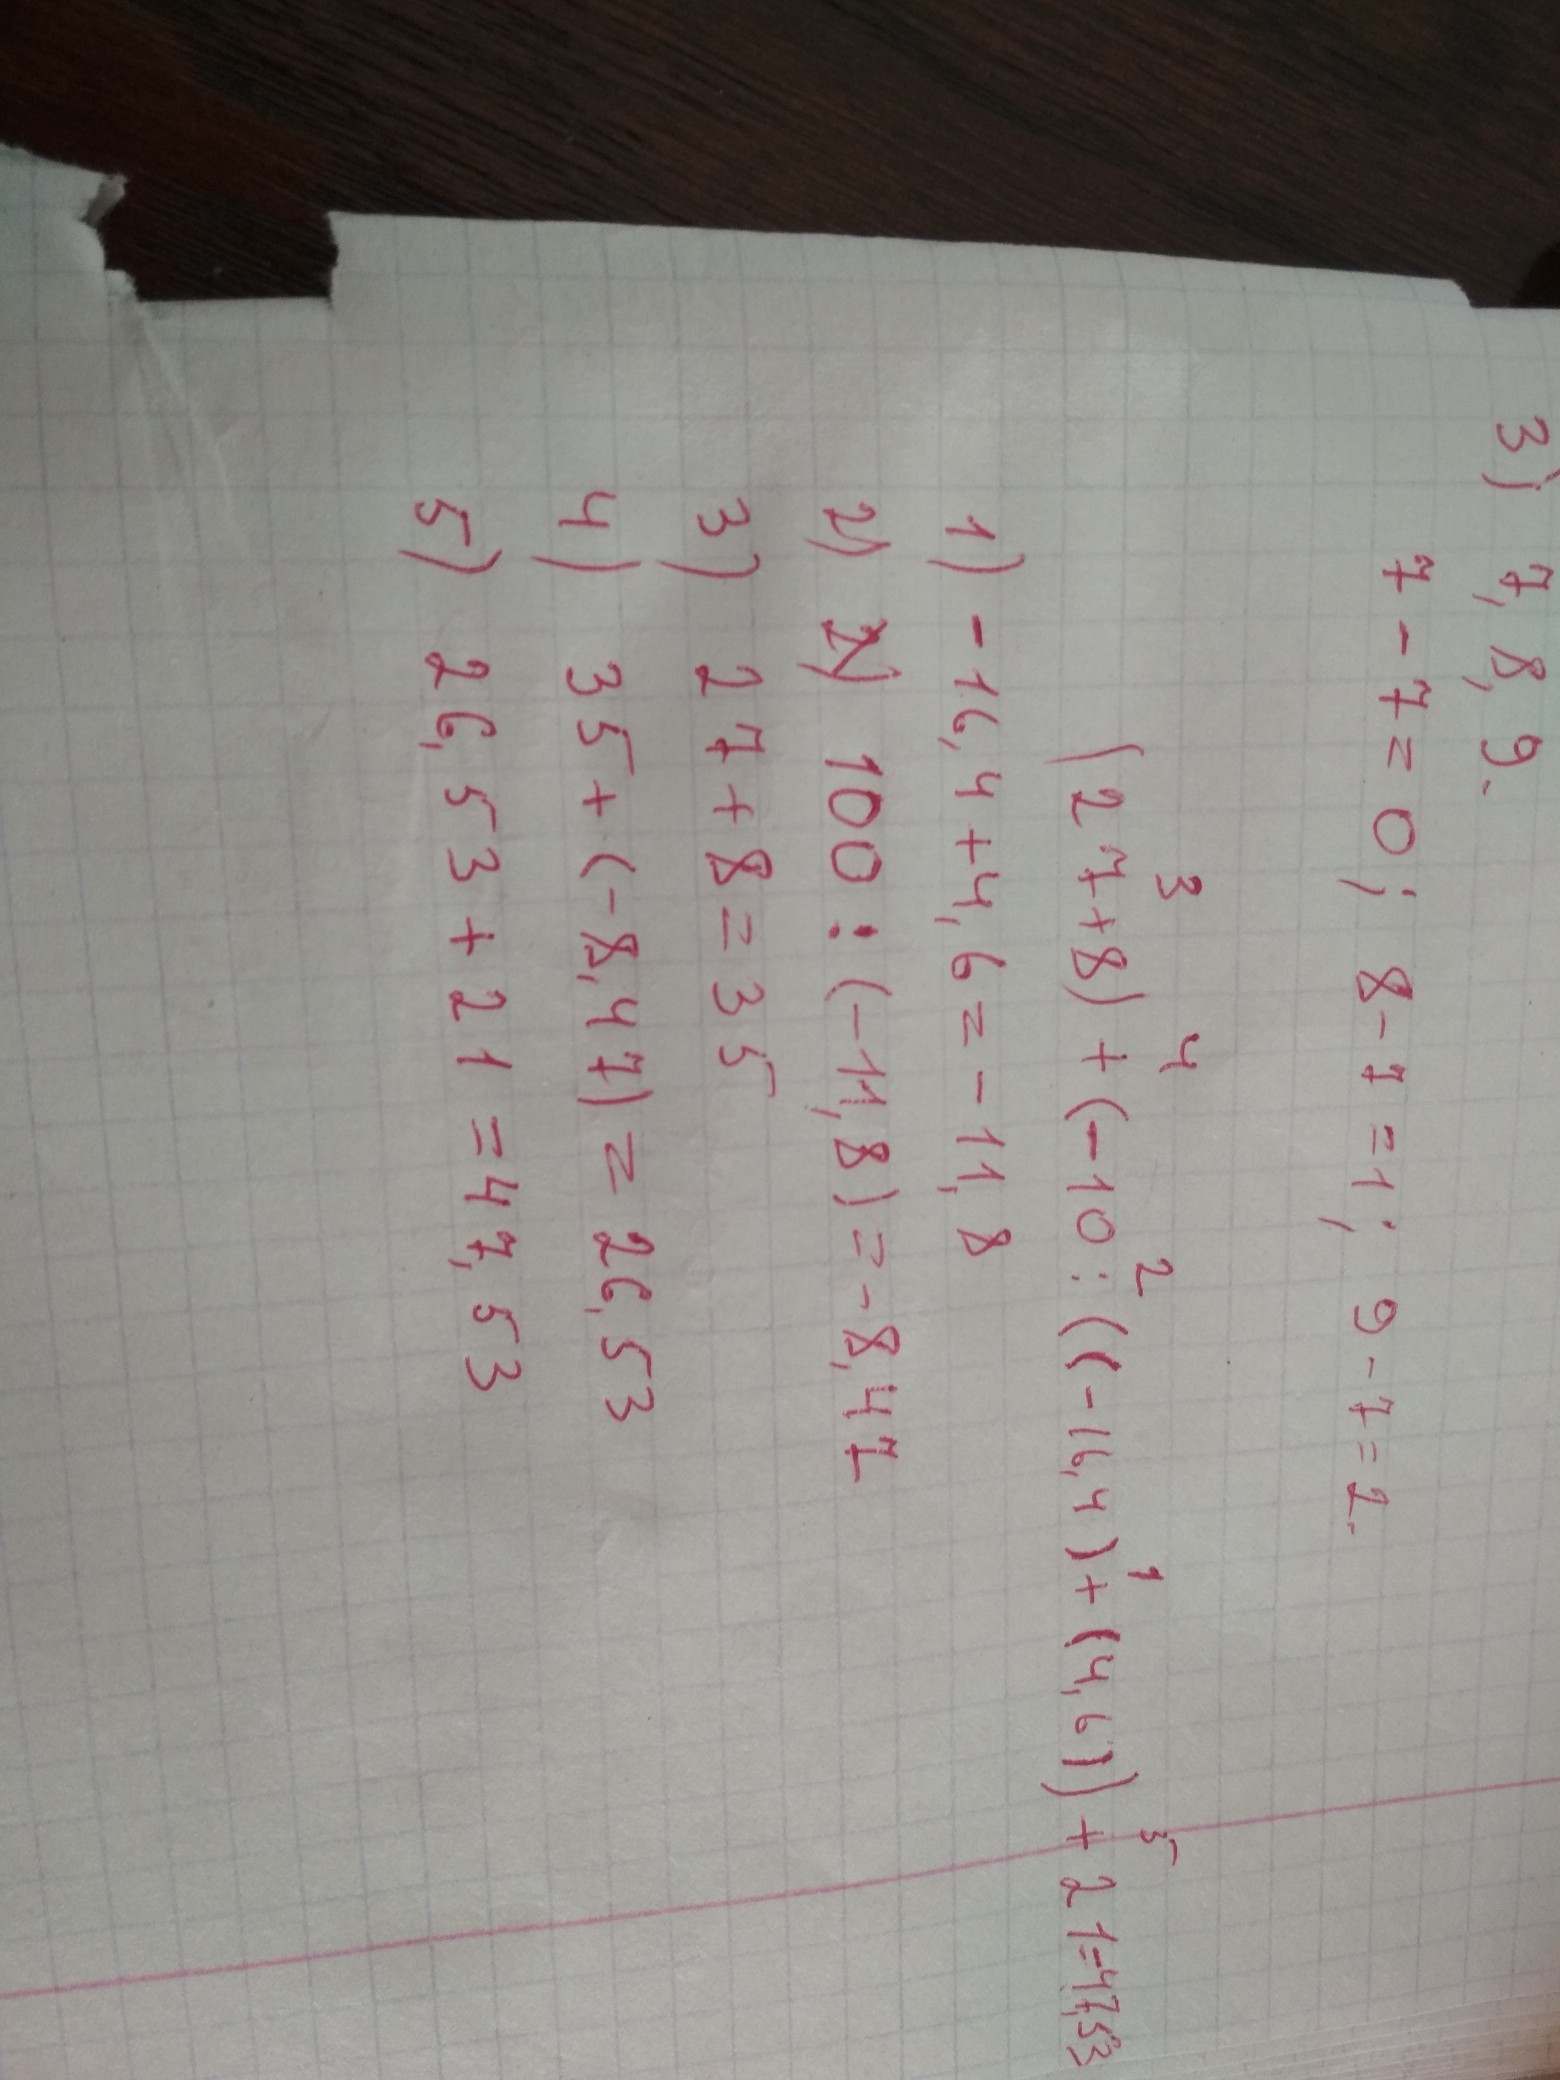 3) 7, 8, 9.
7 - 7 = 0; 8 - 7 = 1; 9 - 7 = 2.
3 4 2 1 5
(27+8) + (-10 : ((-16,4) + (4,6)) + 21=47,53
1) -16,4 + 4,6 = -11,8
2) 2) 100 : (-11,8) = -8,47
3) 27 + 8 = 35
4) 35 + (-8,47) = 26,53
5) 26,53 + 21 = 47,53